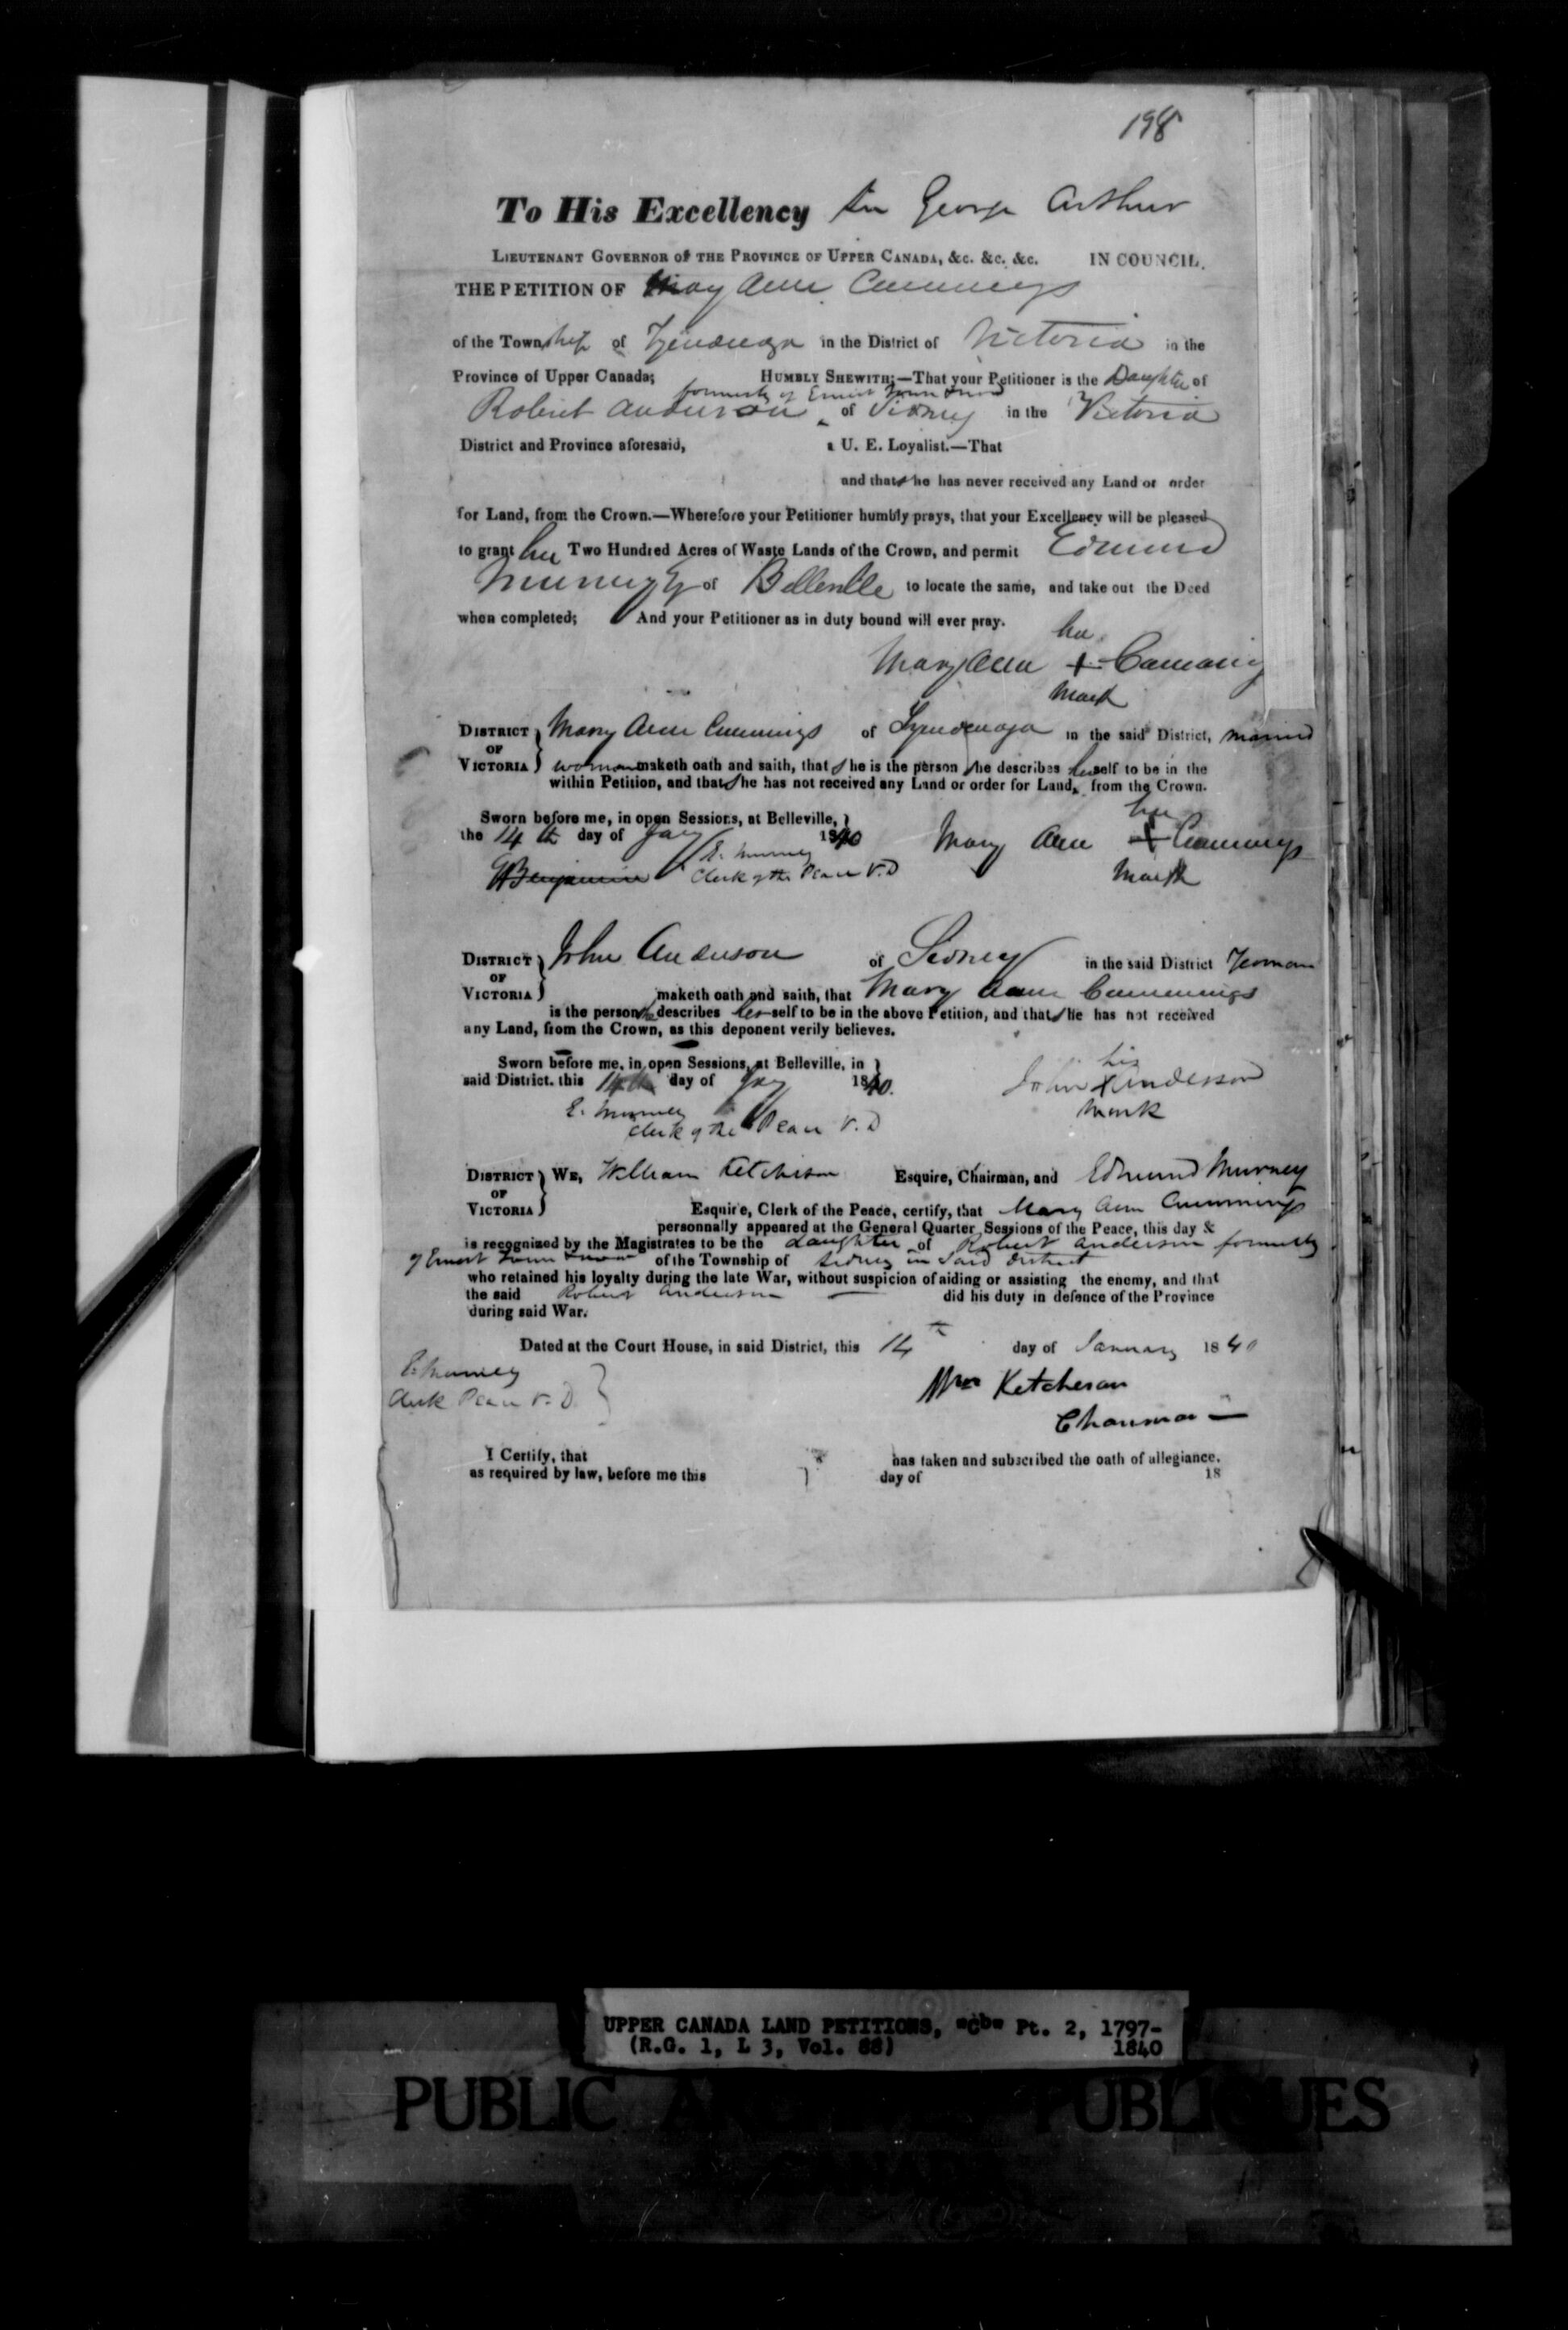 198
To His Excellency Sir George Arthur
LIEUTENANT GOVERNOR of THE PROVINCE OF UPPER CANADA, &c. &c. &c. IN COUNCIL.
THE PETITION OF Mary Ann Cummings
of the Township of Tyendenaga in the District of Victoria in the
Province of Upper Canada; HUMBLY SHEWITH;—That your Petitioner is the Daughter of
formerly of Ernest Town & now
Robert Anderson of Sidney in the Victoria
District and Province aforesaid, a U. E. Loyalist.—That
and that she has never received any Land or order
for Land, from the Crown.—Wherefore your Petitioner humbly prays, that your Excellency will be pleased
to grant her Two Hundred Acres of Waste Lands of the Crown, and permit Edmund
Murney Esq of Belleville to locate the same, and take out the Deed
when completed; And your Petitioner as in duty bound will ever pray.
her
Mary Ann + Cummings
Mark
DISTRICT OF VICTORIA } Mary Ann Cummings of Tyendenaga in the said District, married
woman maketh oath and saith, that she is the person she describes herself to be in the
within Petition, and that she has not received any Land or order for Land, from the Crown.
Sworn before me, in open Sessions, at Belleville, }
the 14th day of Jany 1840
her
Mary Ann + Cummings
Mark
E. Murney
Benjamin Clerk of the Peace V.D
DISTRICT OF VICTORIA } John Anderson of Sidney in the said District Yeoman
maketh oath and saith, that Mary Ann Cummings
is the person she describes herself to be in the above Petition, and that she has not received
any Land, from the Crown, as this deponent verily believes.
Sworn before me, in open Sessions, at Belleville, in }
said District. this 14th day of Jany 1840.
his
John X Anderson
Mark
E. Murney
Clerk of the Peace V.D
DISTRICT OF VICTORIA } WE, William Ketcheson Esquire, Chairman, and Edmund Murney
Esquire, Clerk of the Peace, certify, that Mary Ann Cummings
personnally appeared at the General Quarter Sessions of the Peace, this day &
is recognized by the Magistrates to be the daughter of Robert Anderson formerly
of Ernest Town & now of the Township of Sidney in said District
who retained his loyalty during the late War, without suspicion of aiding or assisting the enemy, and that
the said Robert Anderson did his duty in defence of the Province
during said War.
Dated at the Court House, in said District, this 14th day of January 1840
E. Murney
Clerk Peace V.D. }
Wm Ketcheson
Chairman
I Certify, that has taken and subscribed the oath of allegiance.
as required by law, before me this day of 18
UPPER CANADA LAND PETITIONS, "C" Pt. 2, 1797-
(R.G. 1, L 3, Vol. 88) 1840
PUBLIC PUBLIQUES